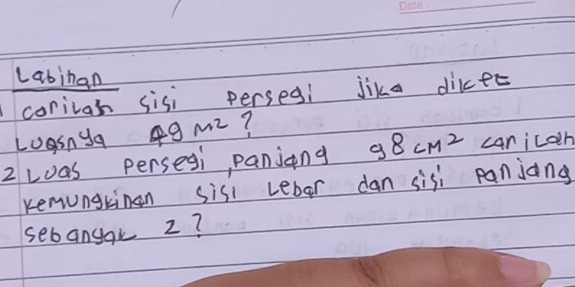 Date:
Labihan
1 carilah sisi persegi jika diket
Luasnya 49 M2?
2 Luas persegi panjang 98 cM² carilah
kemungkinan sisi Lebar dan sisi panjang
sebanyak 2?